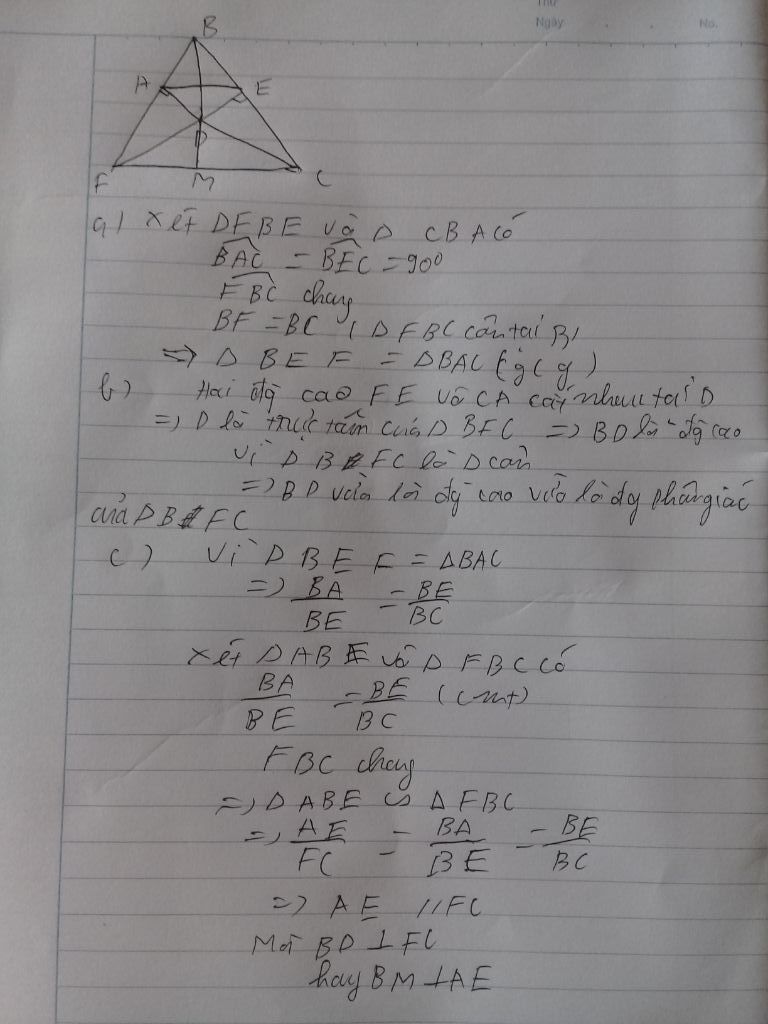 Thứ
Ngày . . No.
B
A E
D
F M C
a) Xét Δ FBE và Δ CBA có
BAC = BEC = 90°
FBC chung
BF = BC ( Δ FBC cân tại B)
=> Δ BEF = ΔBAC (g c g)
b) Hai đg cao FE và CA cắt nhau tại D
=> D là trực tâm của Δ BFC => BD là đg cao
Vì Δ B FC là Δ cân
=> BD vừa là đg cao vừa là đg phân giác
của Δ B FC
c) Vì Δ BEF = ΔBAC
=> BA/BE = BE/BC
Xét Δ ABE và Δ FBC có
BA/BE = BE/BC (cmt)
FBC chung
=> Δ ABE ∽ Δ FBC
=> AE/FC = BA/BE = BE/BC
=> AE // FC
Mà BD ⊥ FC
hay BM ⊥ AE